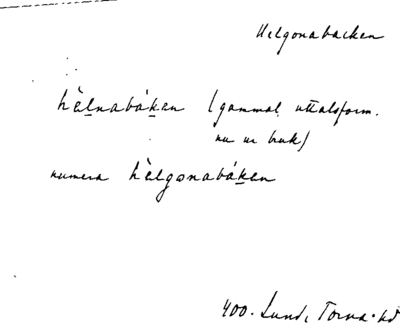 Helgonabacken
hèlnabáken (gammal uttalsform.
nu ur bruk)
numera hèlgonabáken
400. Lund, Torna hd